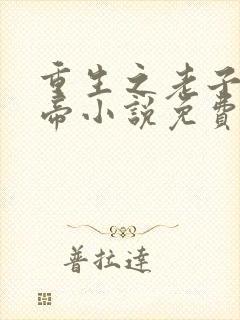 重生之老子
帝小說免費
普拉達